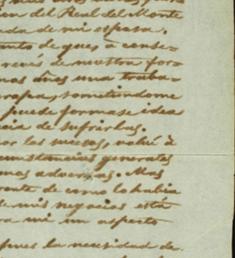 cion del Real del Monte
ada de mi esposa.
unto de que, a conse-
reves de nuestra for-
mos años una traba-
ropa, sometiendome
puede formarse ideas
cia de sufrirlas.
or los sucesos, volvi á
cumstancias generales
mas adversas. Mas
rente de como lo habia
de mis negocios esta
ra mi un aspecto
pues la necesidad de